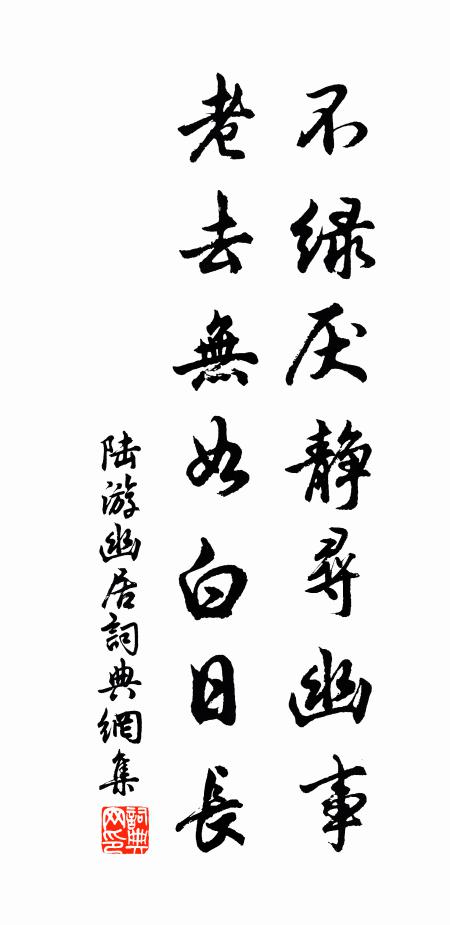 不緣厌靜尋幽事
老去無如白日長
陆游幽居詞典網集
詞典网印